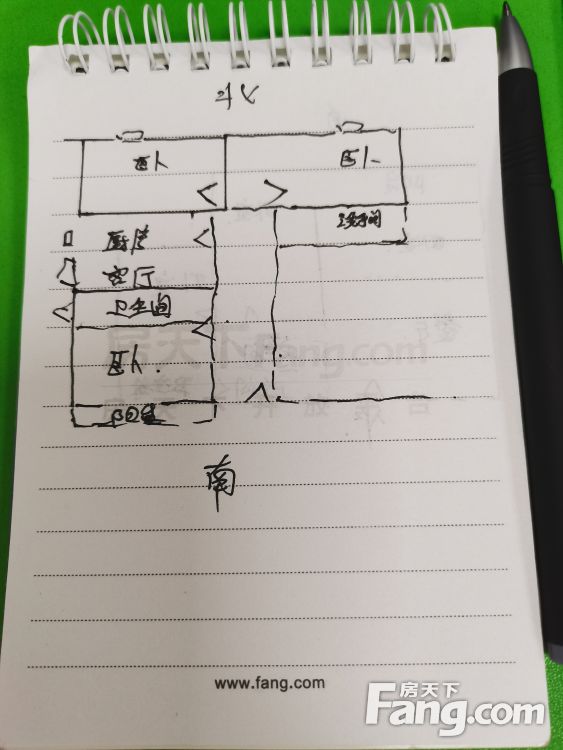 北
卧
卧
厨房
客厅
卫生间
卧
阳台
南
房天下
Fang.com
www.fang.com
房天下
Fang.com